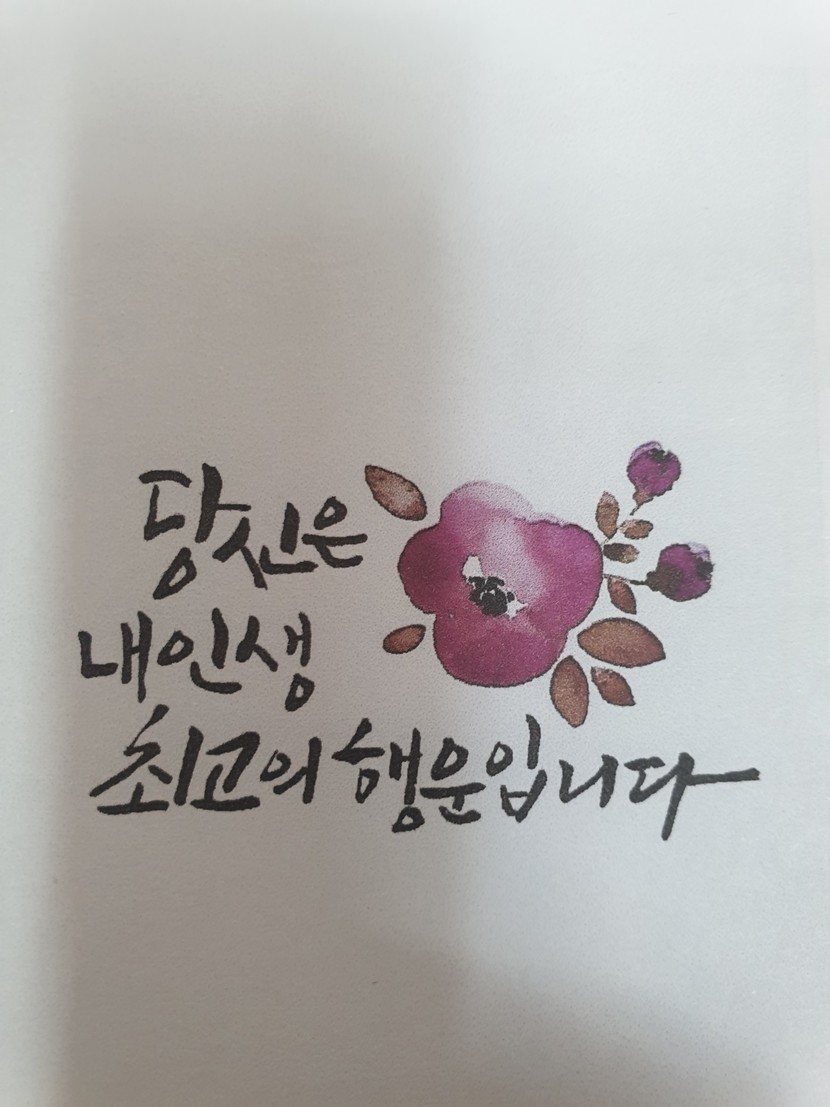 당신은
내인생
최고의 행운입니다